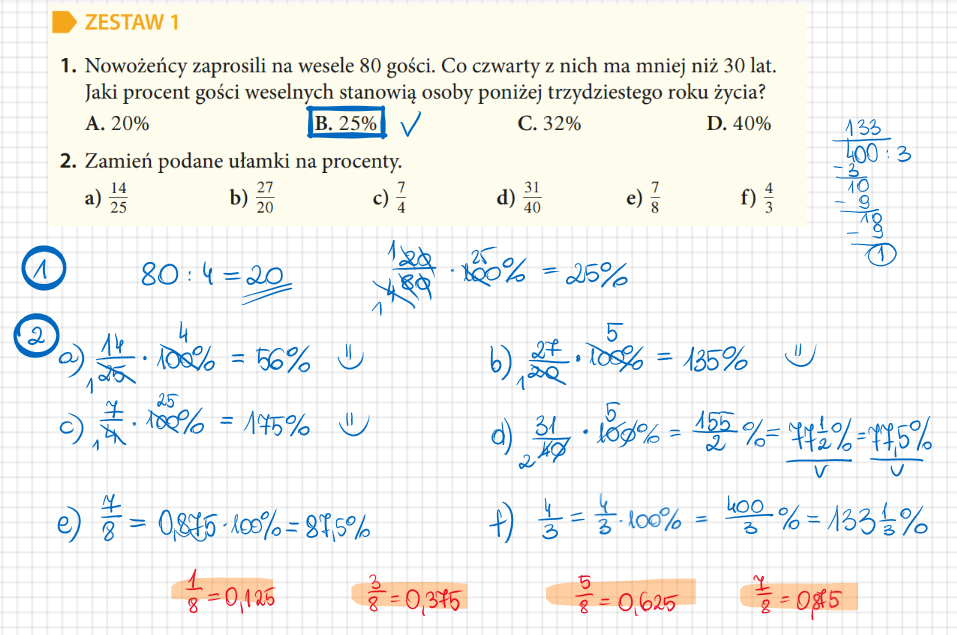 ZESTAW 1
1. Nowożeńcy zaprosili na wesele 80 gości. Co czwarty z nich ma mniej niż 30 lat.
Jaki procent gości weselnych stanowią osoby poniżej trzydziestego roku życia?
A. 20% B. 25% ✓ C. 32% D. 40%
2. Zamień podane ułamki na procenty.
a) 14/25 b) 27/20 c) 7/4 d) 31/40 e) 7/8 f) 4/3
133
400 : 3
-3
10
- 9
10
- 9
1
1 80 : 4 = 20 1 20/80 4 1 · 25 100% = 25%
2
a) 14/25 1 · 4 100% = 56% b) 27/20 1 · 5 100% = 135%
c) 7/4 1 · 25 100% = 175% d) 31/40 2 · 5 100% = 155/2 % = 77 1/2 % = 77,5%
e) 7/8 = 0,875 · 100% = 87,5% f) 4/3 = 4/3 · 100% = 400/3 % = 133 1/3 %
1/8 = 0,125 3/8 = 0,375 5/8 = 0,625 7/8 = 0,875